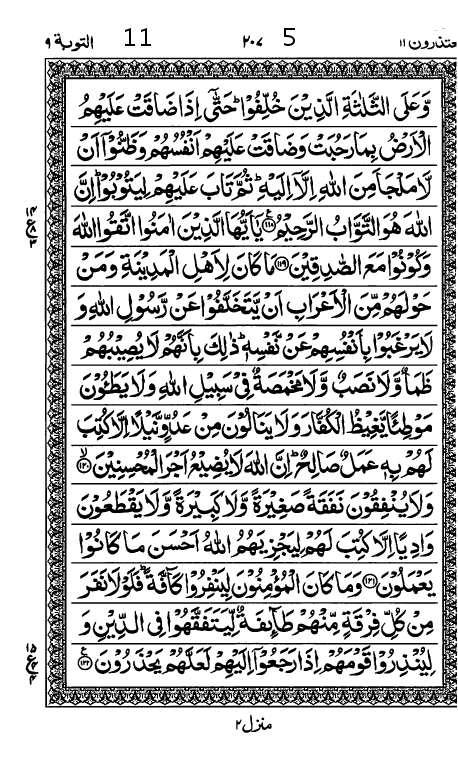 یعتذرون ۱۱ 5 ۲۰۷ 11 التوبة ۹
وَّعَلَى الثَّلٰثَةِ الَّذِيْنَ خُلِّفُوْا ؕ حَتّٰۤى اِذَا ضَاقَتْ عَلَيْهِمُ
الْاَرْضُ بِمَا رَحُبَتْ وَضَاقَتْ عَلَيْهِمْ اَنْفُسُهُمْ وَظَنُّوْۤا اَنْ
لَّا مَلْجَاَ مِنَ اللّٰهِ اِلَّاۤ اِلَيْهِ ؕ ثُمَّ تَابَ عَلَيْهِمْ لِيَتُوْبُوْا ؕ اِنَّ
اللّٰهَ هُوَ التَّوَّابُ الرَّحِيْمُ ۧ ﴿۱۱۸﴾ يٰۤاَيُّهَا الَّذِيْنَ اٰمَنُوا اتَّقُوا اللّٰهَ
وَكُوْنُوْا مَعَ الصّٰدِقِيْنَ ﴿۱۱۹﴾ مَا كَانَ لِاَهْلِ الْمَدِيْنَةِ وَمَنْ
حَوْلَهُمْ مِّنَ الْاَعْرَابِ اَنْ يَّتَخَلَّفُوْا عَنْ رَّسُوْلِ اللّٰهِ وَ
لَا يَرْغَبُوْا بِاَنْفُسِهِمْ عَنْ نَّفْسِهٖ ؕ ذٰلِكَ بِاَنَّهُمْ لَا يُصِيْبُهُمْ
ظَمَاٌ وَّلَا نَصَبٌ وَّلَا مَخْمَصَةٌ فِيْ سَبِيْلِ اللّٰهِ وَلَا يَطَـُٔوْنَ
مَوْطِئًا يَّغِيْظُ الْكُفَّارَ وَلَا يَنَالُوْنَ مِنْ عَدُوٍّ نَّيْلًا اِلَّا كُتِبَ
لَهُمْ بِهٖ عَمَلٌ صَالِحٌ ؕ اِنَّ اللّٰهَ لَا يُضِيْعُ اَجْرَ الْمُحْسِنِيْنَ ۙ ﴿۱۲۰﴾
وَلَا يُنْفِقُوْنَ نَفَقَةً صَغِيْرَةً وَّلَا كَبِيْرَةً وَّلَا يَقْطَعُوْنَ
وَادِيًا اِلَّا كُتِبَ لَهُمْ لِيَجْزِيَهُمُ اللّٰهُ اَحْسَنَ مَا كَانُوْا
يَعْمَلُوْنَ ﴿۱۲۱﴾ وَمَا كَانَ الْمُؤْمِنُوْنَ لِيَنْفِرُوْا كَآفَّةً ؕ فَلَوْلَا نَفَرَ
مِنْ كُلِّ فِرْقَةٍ مِّنْهُمْ طَآئِفَةٌ لِّيَتَفَقَّهُوْا فِى الدِّيْنِ وَ
لِيُنْذِرُوْا قَوْمَهُمْ اِذَا رَجَعُوْۤا اِلَيْهِمْ لَعَلَّهُمْ يَحْذَرُوْنَ ۧ ﴿۱۲۲﴾
منزل ۲